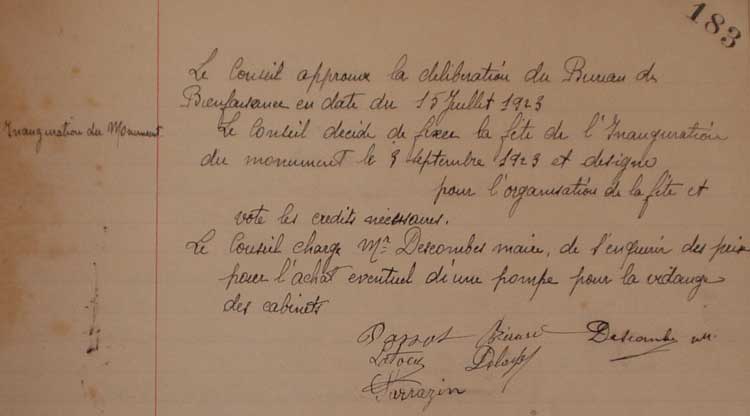 183
Le Conseil approuve la deliberation du Bureau de
Bienfaisance en date du 15 Juillet 1923
Inauguration du Monument
Le Conseil decide de fixer la fête de l'Inauguration
du monument le septembre 1923 et designe
pour l'organisation de la fête et
vote les credits nécessaires.
Le Conseil charge Mr Descombes maire, de s'enquerir des prix
pour l'achat eventuel d'une pompe pour la vidange
des cabinets
Descombes
Sarrazin